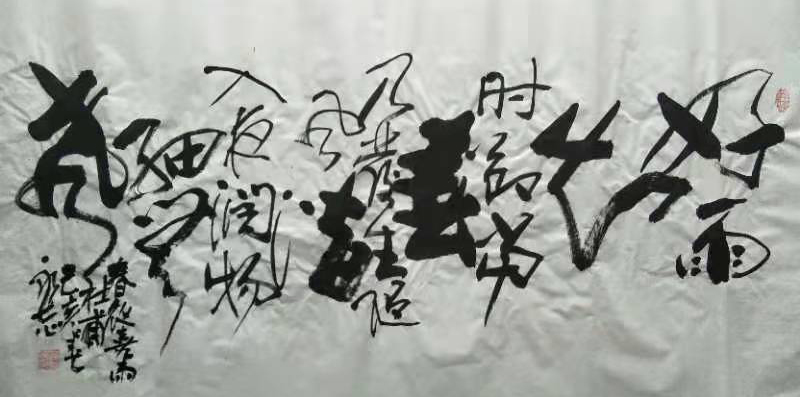 好雨
知
时节当
春
乃發生随
风潜
入夜润物
细无
声
春夜喜雨
杜甫
己亥春
永志